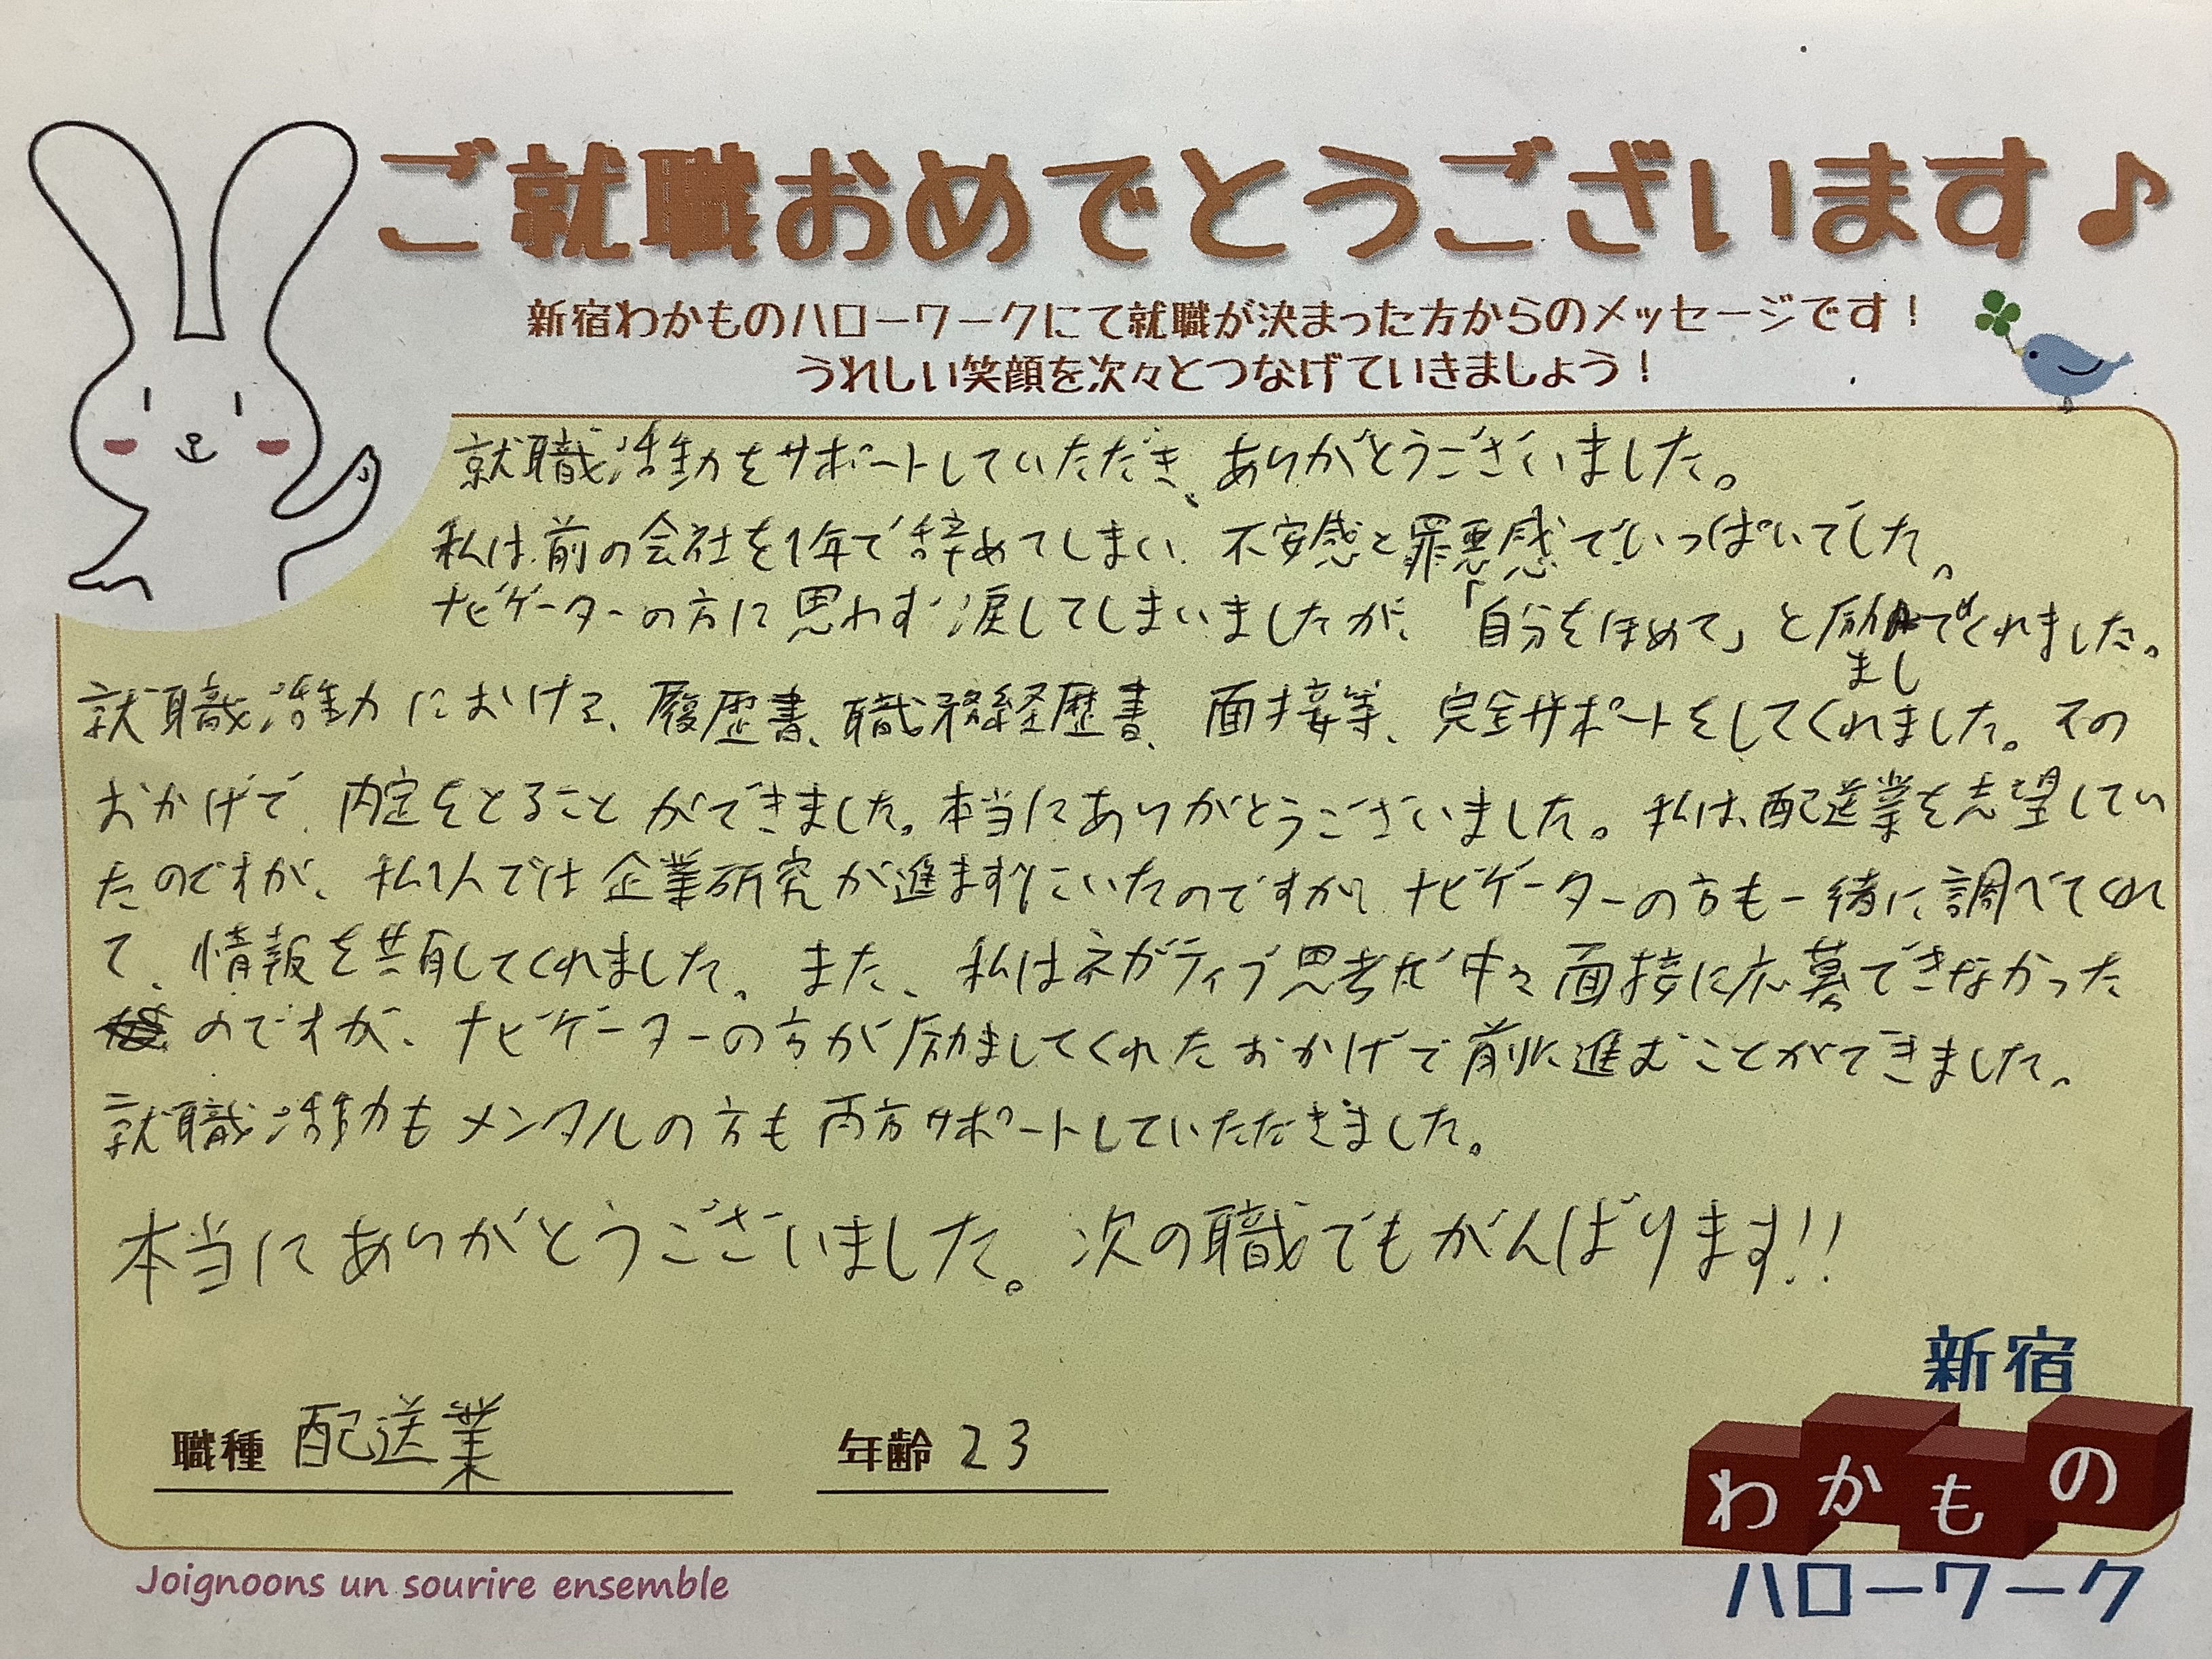 ご就職おめでとうございます♪
新宿わかものハローワークにて就職が決まった方からのメッセージです！
うれしい笑顔を次々とつなげていきましょう！
就職活動をサポートしていただき、ありがとうございました。
私は前の会社を1年で辞めてしまい、不安感と罪悪感でいっぱいでした。
ナビゲーターの方に思わず涙してしまいましたが、「自分をほめて」と励ましてくれました。
就職活動における、履歴書、職務経歴書、面接等、完全サポートをしてくれました。その
おかげで、内定をとることができました。本当にありがとうございました。私は、配送業を志望してい
たのですが、私1人では企業研究が進まずにいたのですが、ナビゲーターの方も一緒に調べてくれ
て、情報を共有してくれました。また、私はネガティブ思考だ中々面接に応募できなかった
のですが、ナビゲーターの方が励ましてくれたおかげで前に進むことができました。
就職活動もメンタルの方も両方サポートしていただきました。
本当にありがとうございました。次の職でもがんばります!!
職種 配送業 年齢 23
新宿
わかもの
ハローワーク
Joignoons un sourire ensemble